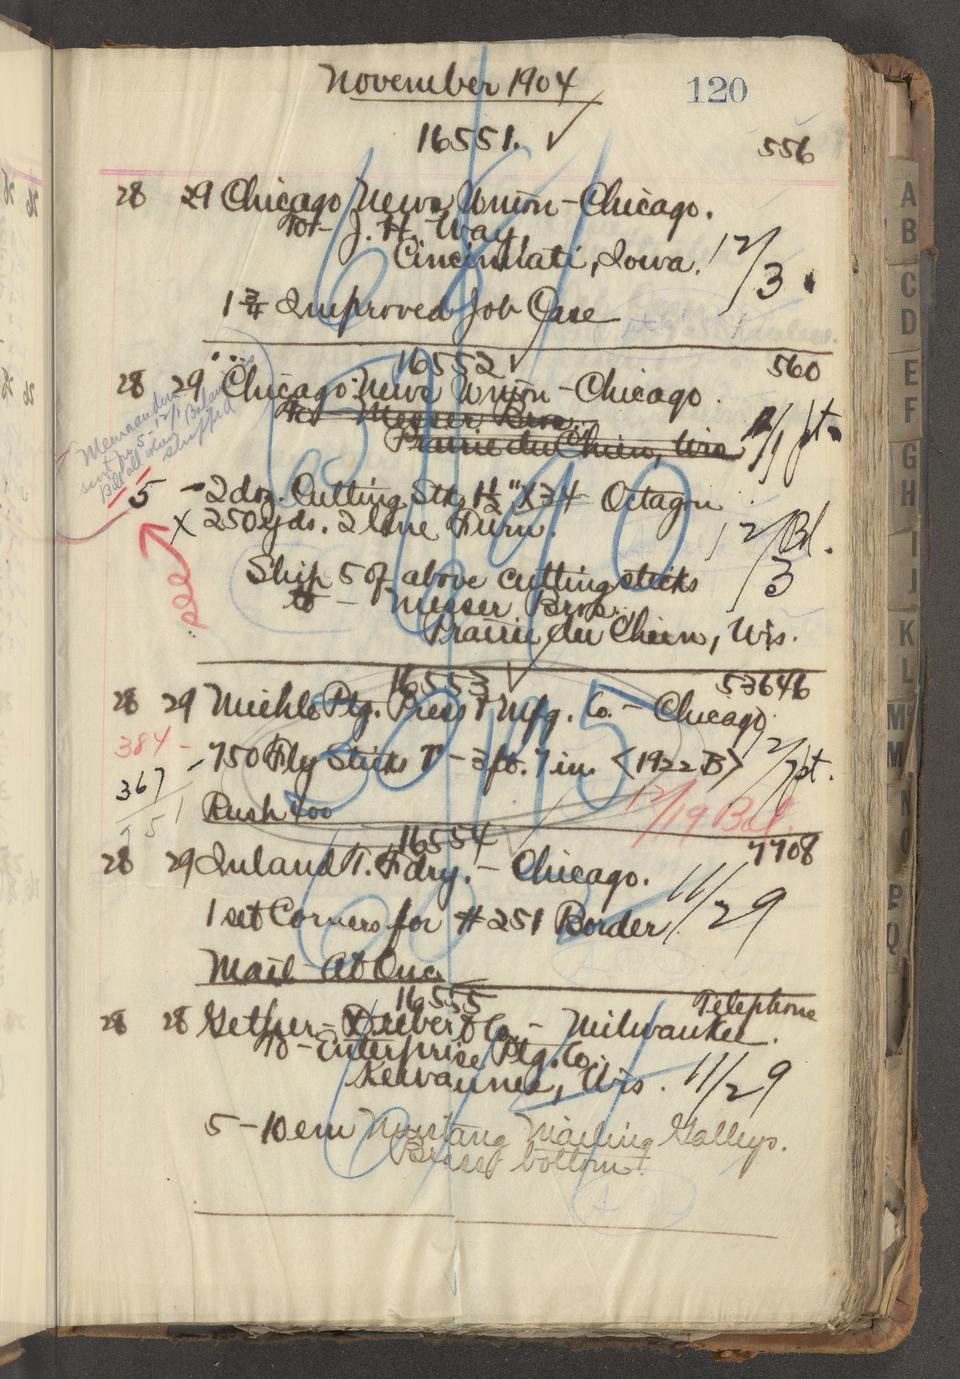 November 1904
120
16551. ✓
556
28 29 Chicago News Union - Chicago.
to - J. H. Way
Cincinnati, Iowa.
12/3
1 3/4 Improved Job Case
16552 ✓
560
28 29 Chicago News Union - Chicago.
to Messer Bros.
Prairie du Chien, Wis
12/1 pt.
Memorandum
5 - 2 doz. Cutting Stks 1 1/2" X 34 Octagon
X 250 yds. 2 line Furn.
12/3 Bl.
Ship 5 of above cutting sticks
to - Messer Bros.
Prairie du Chien, Wis.
see
16553 ✓
53646
28 29 Miehle Ptg. Press & Mfg. Co. - Chicago
384 -
367
751
- 750 Fly Sticks T - 3 ft. 7 in. <1922 B>
12/7 pt.
Rush 400
12/19 Bal.
3815
16554 ✓
7708
28 29 Inland T. Fdry. - Chicago.
1 set Corners for #251 Border
11/29
Mail At Once
16555
Telephone
28 28 Gether-Drueber & Co. - Milwaukee.
to - Enterprise Ptg. Co.
Kewaunee, Wis.
11/29
5 - 10 em Mustang Mailing Galleys.
Brass bottom.
A
B
C
D
E
F
G
H
I
J
K
L
Mc
M
N
O
P
Q